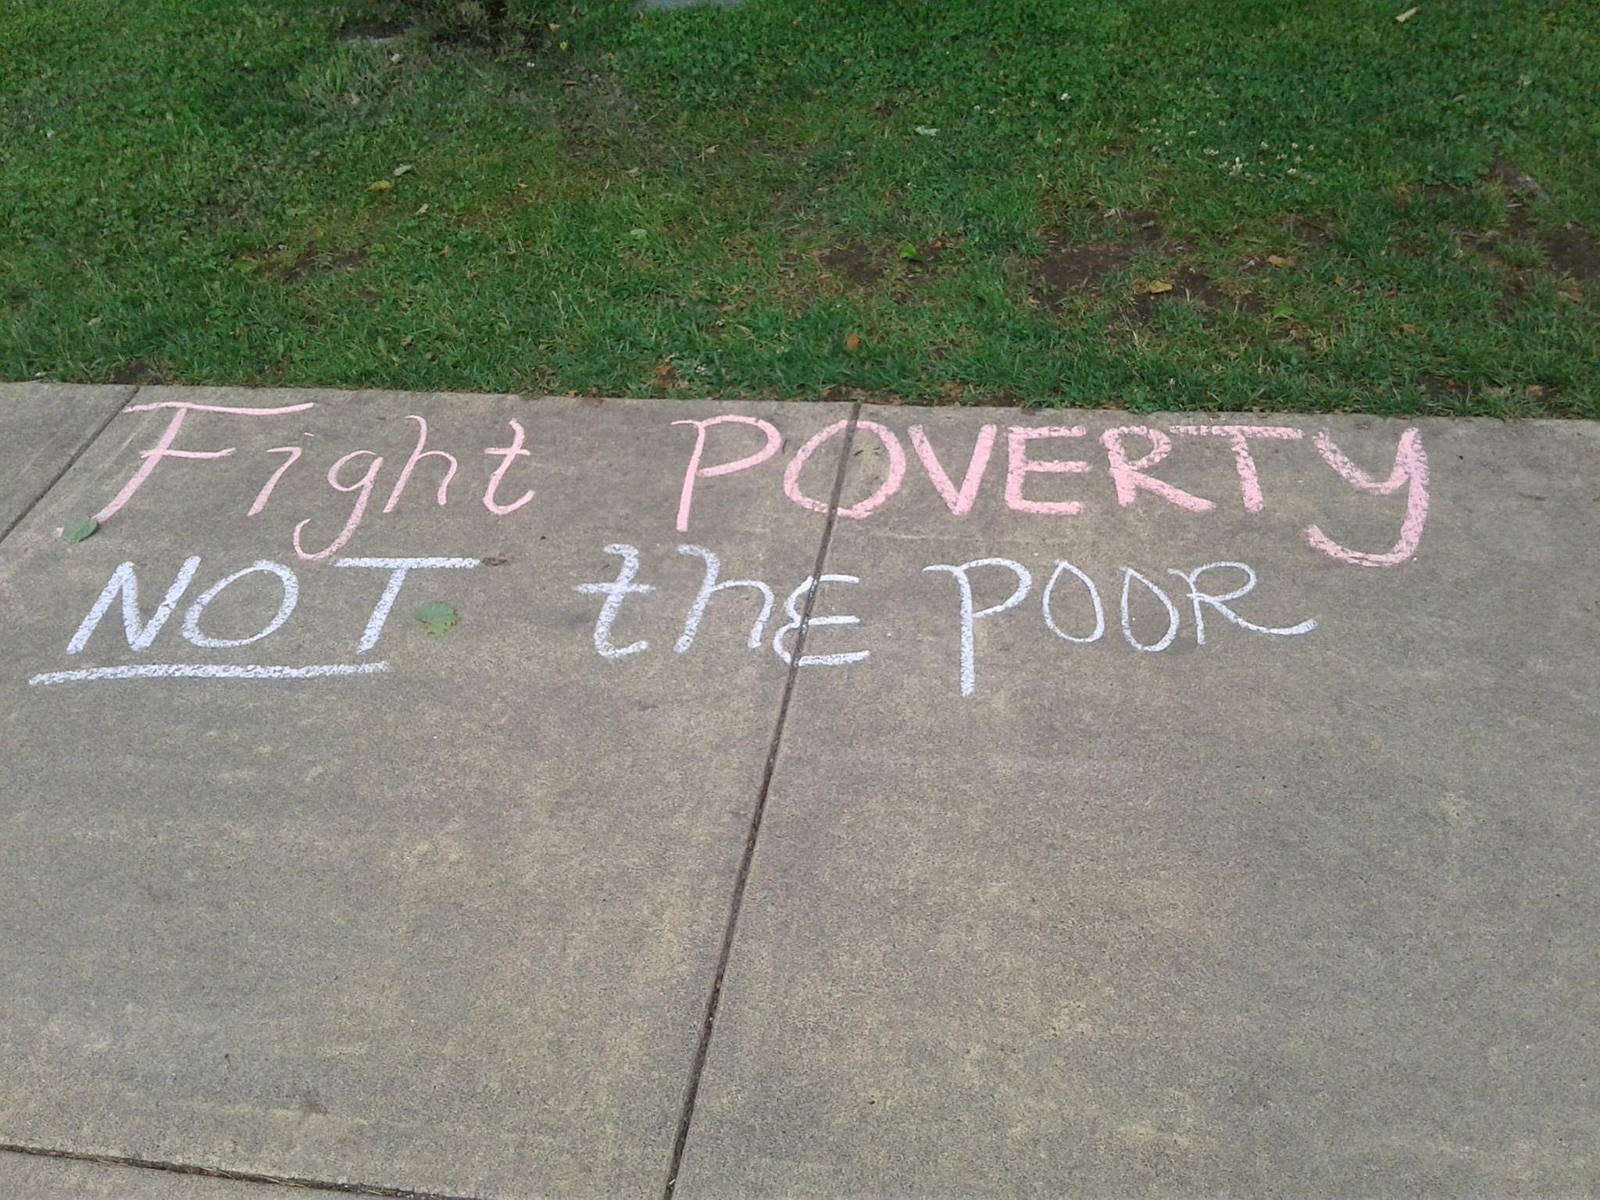 Fight POVERTY
NOT the POOR